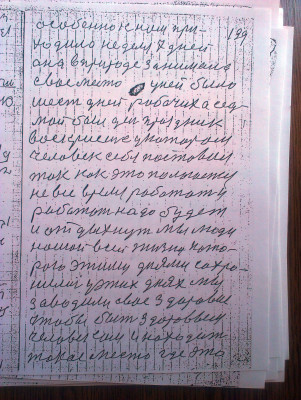 особенно к нам при-
ходило неделя 7 дней 139
она в природе занимала
свое место у ней было
шесть дней рабочих а сед-
мой был ден праздник
воскриение у котором
человек себя поставил
так как это положено
не все время работат и
работат надо будет
и от дыхнут мы люди
нашой всей жизни кото-
рого этими днями сохра-
нили у этих днях мы
заводили свое здоровье
чтобы быт здоровым
человеком и находит
такое место где эта